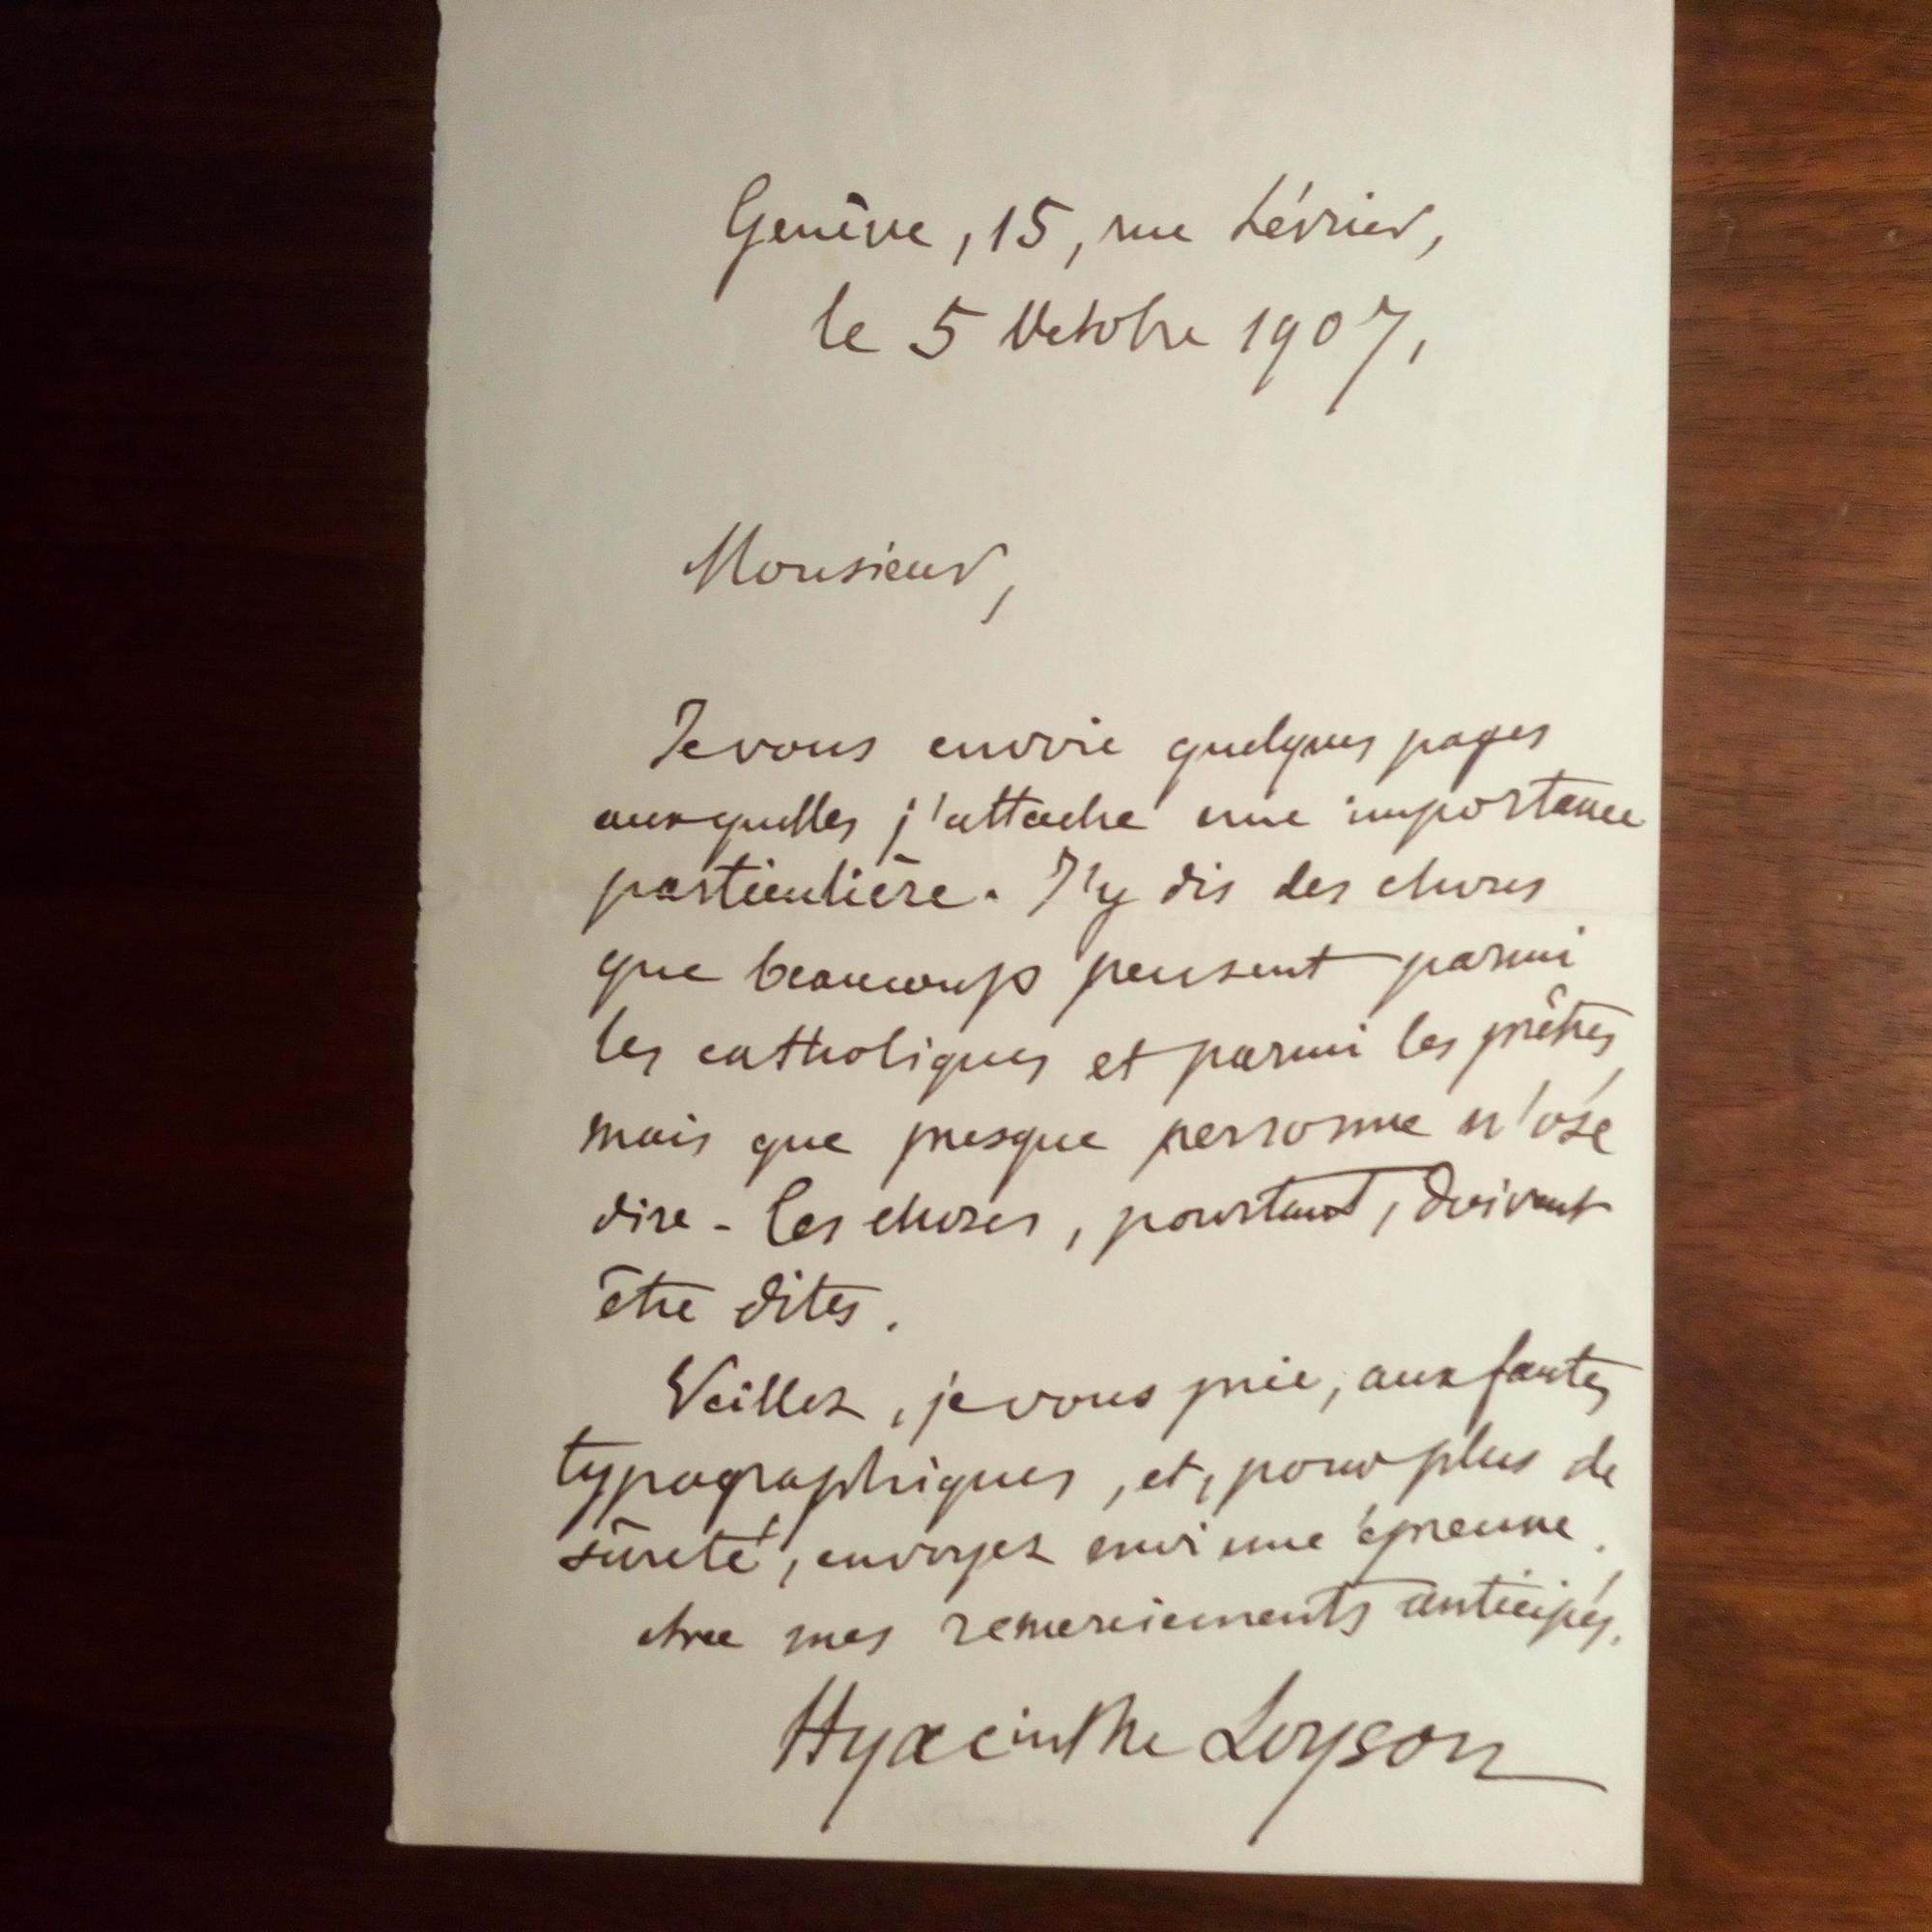 Genève, 15, rue Lévrier,
le 5 Octobre 1907,
Monsieur,
Je vous envoie quelques pages
auxquelles j'attache une importance
particulière. J'y dis des choses
que beaucoup pensent parmi
les catholiques et parmi les prêtres,
mais que presque personne n'ose
dire. Ces choses, pourtant, doivent
être dites.
Veillez, je vous prie, aux fautes
typographiques, et, pour plus de
sûreté, envoyez moi une épreuve.
Avec mes remerciements anticipés.
Hyacinthe Loyson